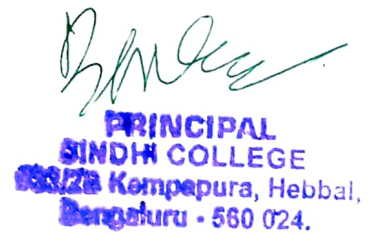 PRINCIPAL
SINDHI COLLEGE
Kempapura, Hebbal,
Bengaluru - 560 024.